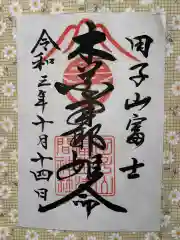 田子山富士
木花開耶姫命
令和三年十月十四日